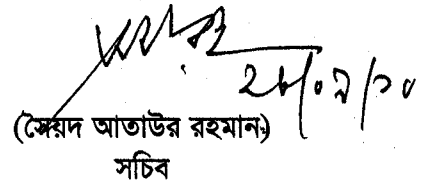 ২৮/০৯/১০
(সৈয়দ আতাউর রহমান)
সচিব